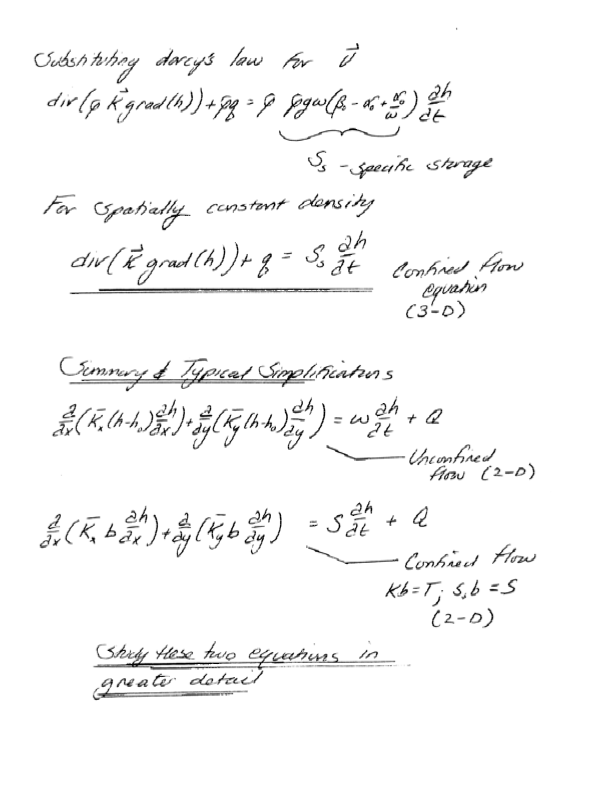 Substituting darcy's law for v⃗
div(ρ K⃗ grad(h)) + ρq = ρ ρgω(β₀ - α₀ + α₀/ω) ∂h/∂t
Sₛ - specific storage
For spatially constant density
div(K⃗ grad(h)) + q = Sₛ ∂h/∂t
Confined flow
equation
(3-D)
Summary & Typical Simplifications
∂/∂x(K̄ₓ(h-h₀)∂h/∂x) + ∂/∂y(K̄y(h-h₀)∂h/∂y) = ω ∂h/∂t + Q
Unconfined
flow (2-D)
∂/∂x(K̄ₓ b ∂h/∂x) + ∂/∂y(K̄y b ∂h/∂y) = S ∂h/∂t + Q
Confined flow
Kb = T; Sₛb = S
(2-D)
Study these two equations in
greater detail